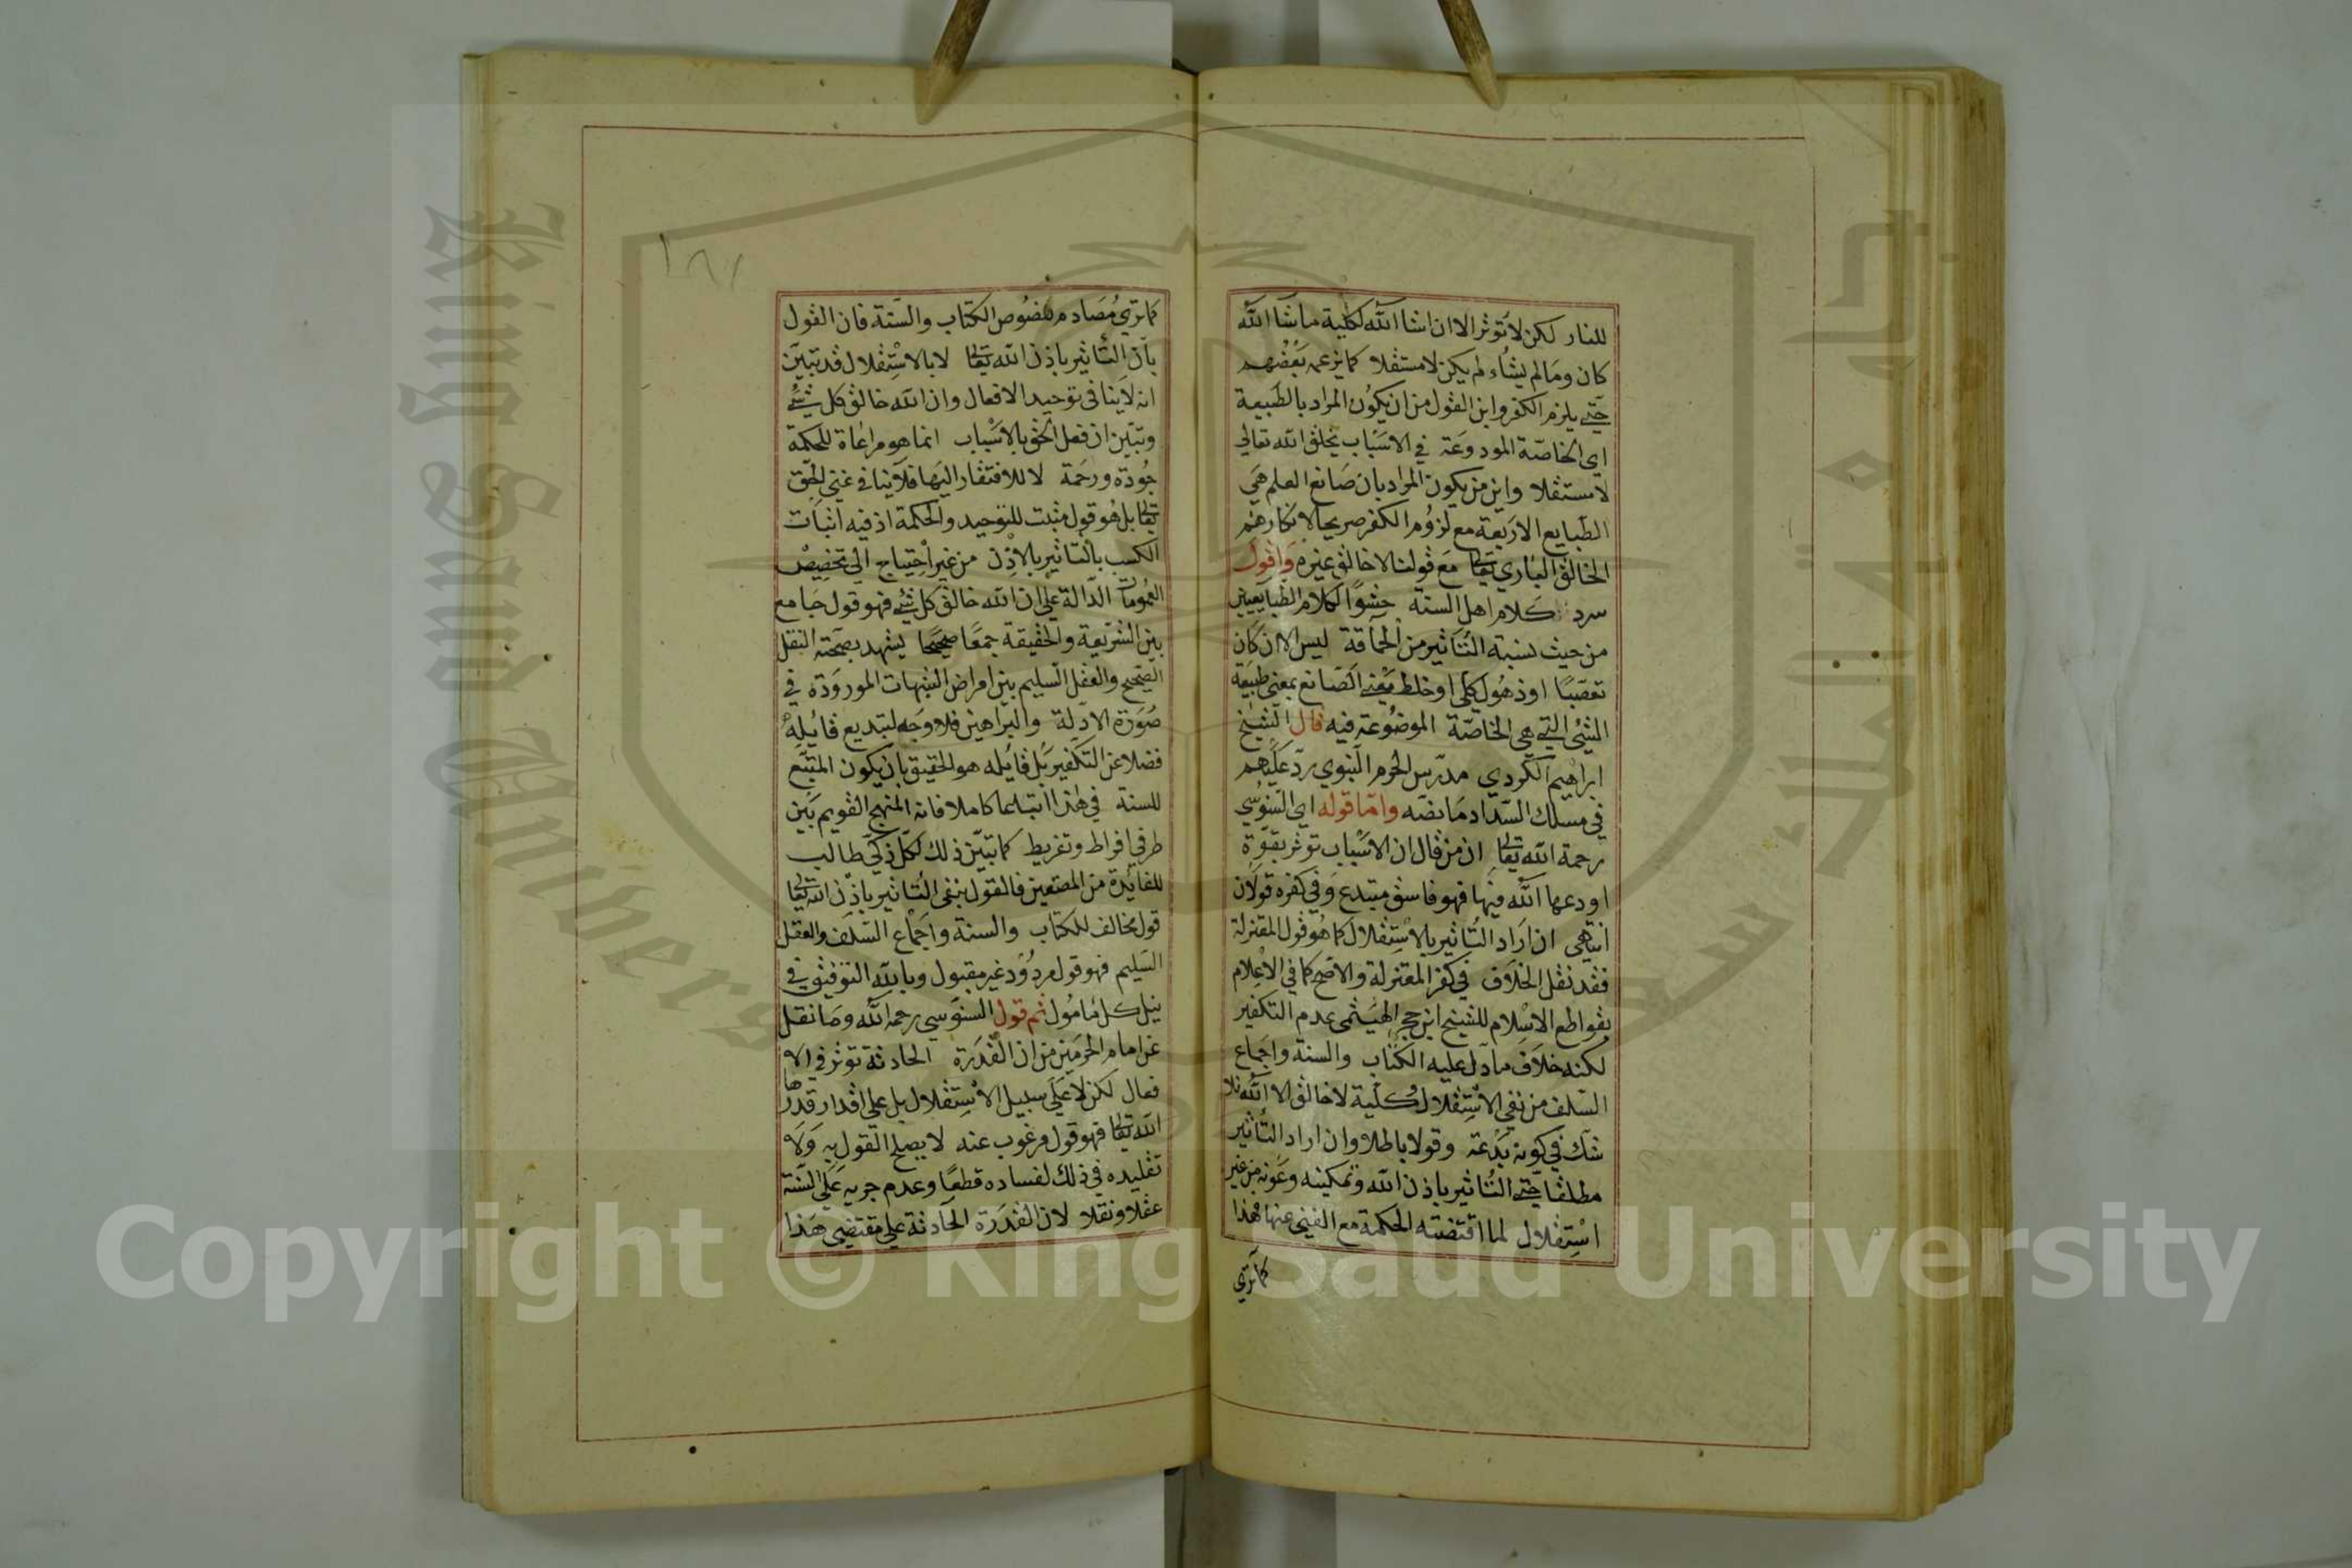 للنار لكن لا توثر الا ان اشا الله لكلية ماشا الله
كان ومالم يشاء لم يكن لا مستقلا كما يزعمه بعضهم
حتى يلزم الكفر واين القول من ان يكون المراد بالطبيعة
اي الخاصة المودوعة في الاسباب يخلق الله تعالى
لا مستقلا واين من يكون المراد بان صانع العلم هي
الطبايع الاربعة مع لزوم الكفر صريحا لانكارهم
الخالق الباري تعالى مع قولنا لا خالق غيره واقول
سرد كلام اهل السنة حشوا لكلام الطبايعيين
من حيث نسبة التاثير من الحماقة ليس الا ان كان
تعصبا او ذهول كلى او خلط معنى الصانع بمعنى طبيعة
الشئ التى هى الخاصة الموضوعة فيه قال الشيخ
ابراهيم الكردي مدرس الحرم النبوي رد عليهم
في مسلك السداد ما نصه واما قوله اي السنوسي
رحمة الله تعالى ان من قال ان الاسباب توثر بقوة
اودعها الله فيها فهو فاسق مبتدع وفي كفره قولان
انتهى ان اراد التاثير بالاستقلال كما هو قول المعتزلة
فقد نقل الخلاف في كفر المعتزلة والاصح كما في الاعلام
بقواطع الاسلام للشيخ ابن حجر الهيثمى عدم التكفير
لكنه خلاف ما دل عليه الكتاب والسنة واجماع
السلف من نفي الاستقلال وكلية لا خالق الا الله فلا
شك في كونه بدعة وقولا باطلا وان اراد التاثير
مطلقا حتى التاثير باذن الله وتمكينه وعونه من غير
استقلال لما اقتضته الحكمة مع الغنى عنها فهذا
كما ترى
١٨١
كما ترى مصادم لنصوص الكتاب والسنة فان القول
بان التاثير باذن الله تعالى لا بالاستقلال قد تبين
انه لا ينافى توحيد الافعال وان الله خالق كل شئ
وتبين ان فعل الحق بالاسباب انما هو مراعاة للحكمة
جودة ورحمة لا للافتقار اليها فلا ينافي غنى الحق
تعالى بل هو قول مثبت للتوحيد والحكمة اذ فيه اثبات
الكسب بالتاثير بالاذن من غير احتياج الى تخصيص
العمومات الدالة على ان الله خالق كل شئ فهو قول جامع
بين الشريعة والحقيقة جمعا صحيحا يشهد بصحته النقل
الصحيح والعقل السليم بين امراض الشبهات الموردة في
صورة الادلة والبراهين فلا وجه لتبديع قايله
فضلا عن التكفير بل قايله هو الحقيق بان يكون المتبع
للسنة في هذا اتباعا كاملا فانه المنهج القويم بين
طرفي افراط وتفريط كما تبين ذلك لكل ذكي طالب
للفائدة من المصنعين فالقول بنفي التاثير باذن الله تعالى
قول مخالف للكتاب والسنة واجماع السلف والعقل
السليم فهو قول مردود غير مقبول وبالله التوفيق في
نيل كل مامول ثم قول السنوسي رحمه الله وما نقل
عن امام الحرمين من ان القدرة الحادثة توثر في الا
فعال لكن لا على سبيل الاستقلال بل على اقدار قدرها
الله تعالى فهو قول مرغوب عنه لا يصلح القول به ولا
تقليده في ذلك لفساده قطعا وعدم جريه على السنة
عقلا ونقلا لان القدرة الحادثة على مقتضى هذا
King Saud University
Copyright © King Saud University